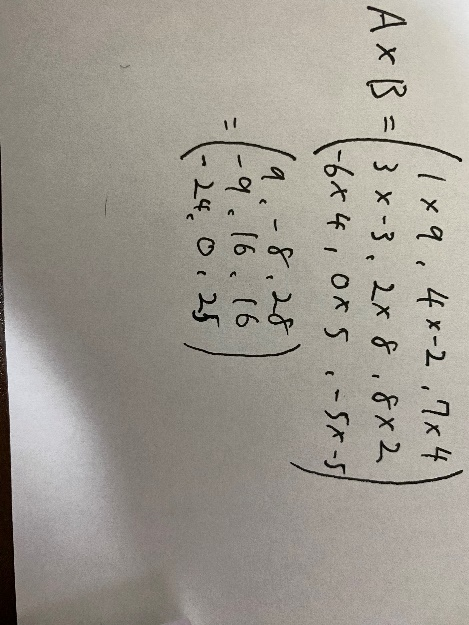 A × B = ( 1 × 9, 4 × -2, 7 × 4
3 × -3, 2 × 8, 8 × 2
-6 × 4, 0 × 5, -5 × -5 )
= ( 9, -8, 28
-9, 16, 16
-24, 0, 25 )